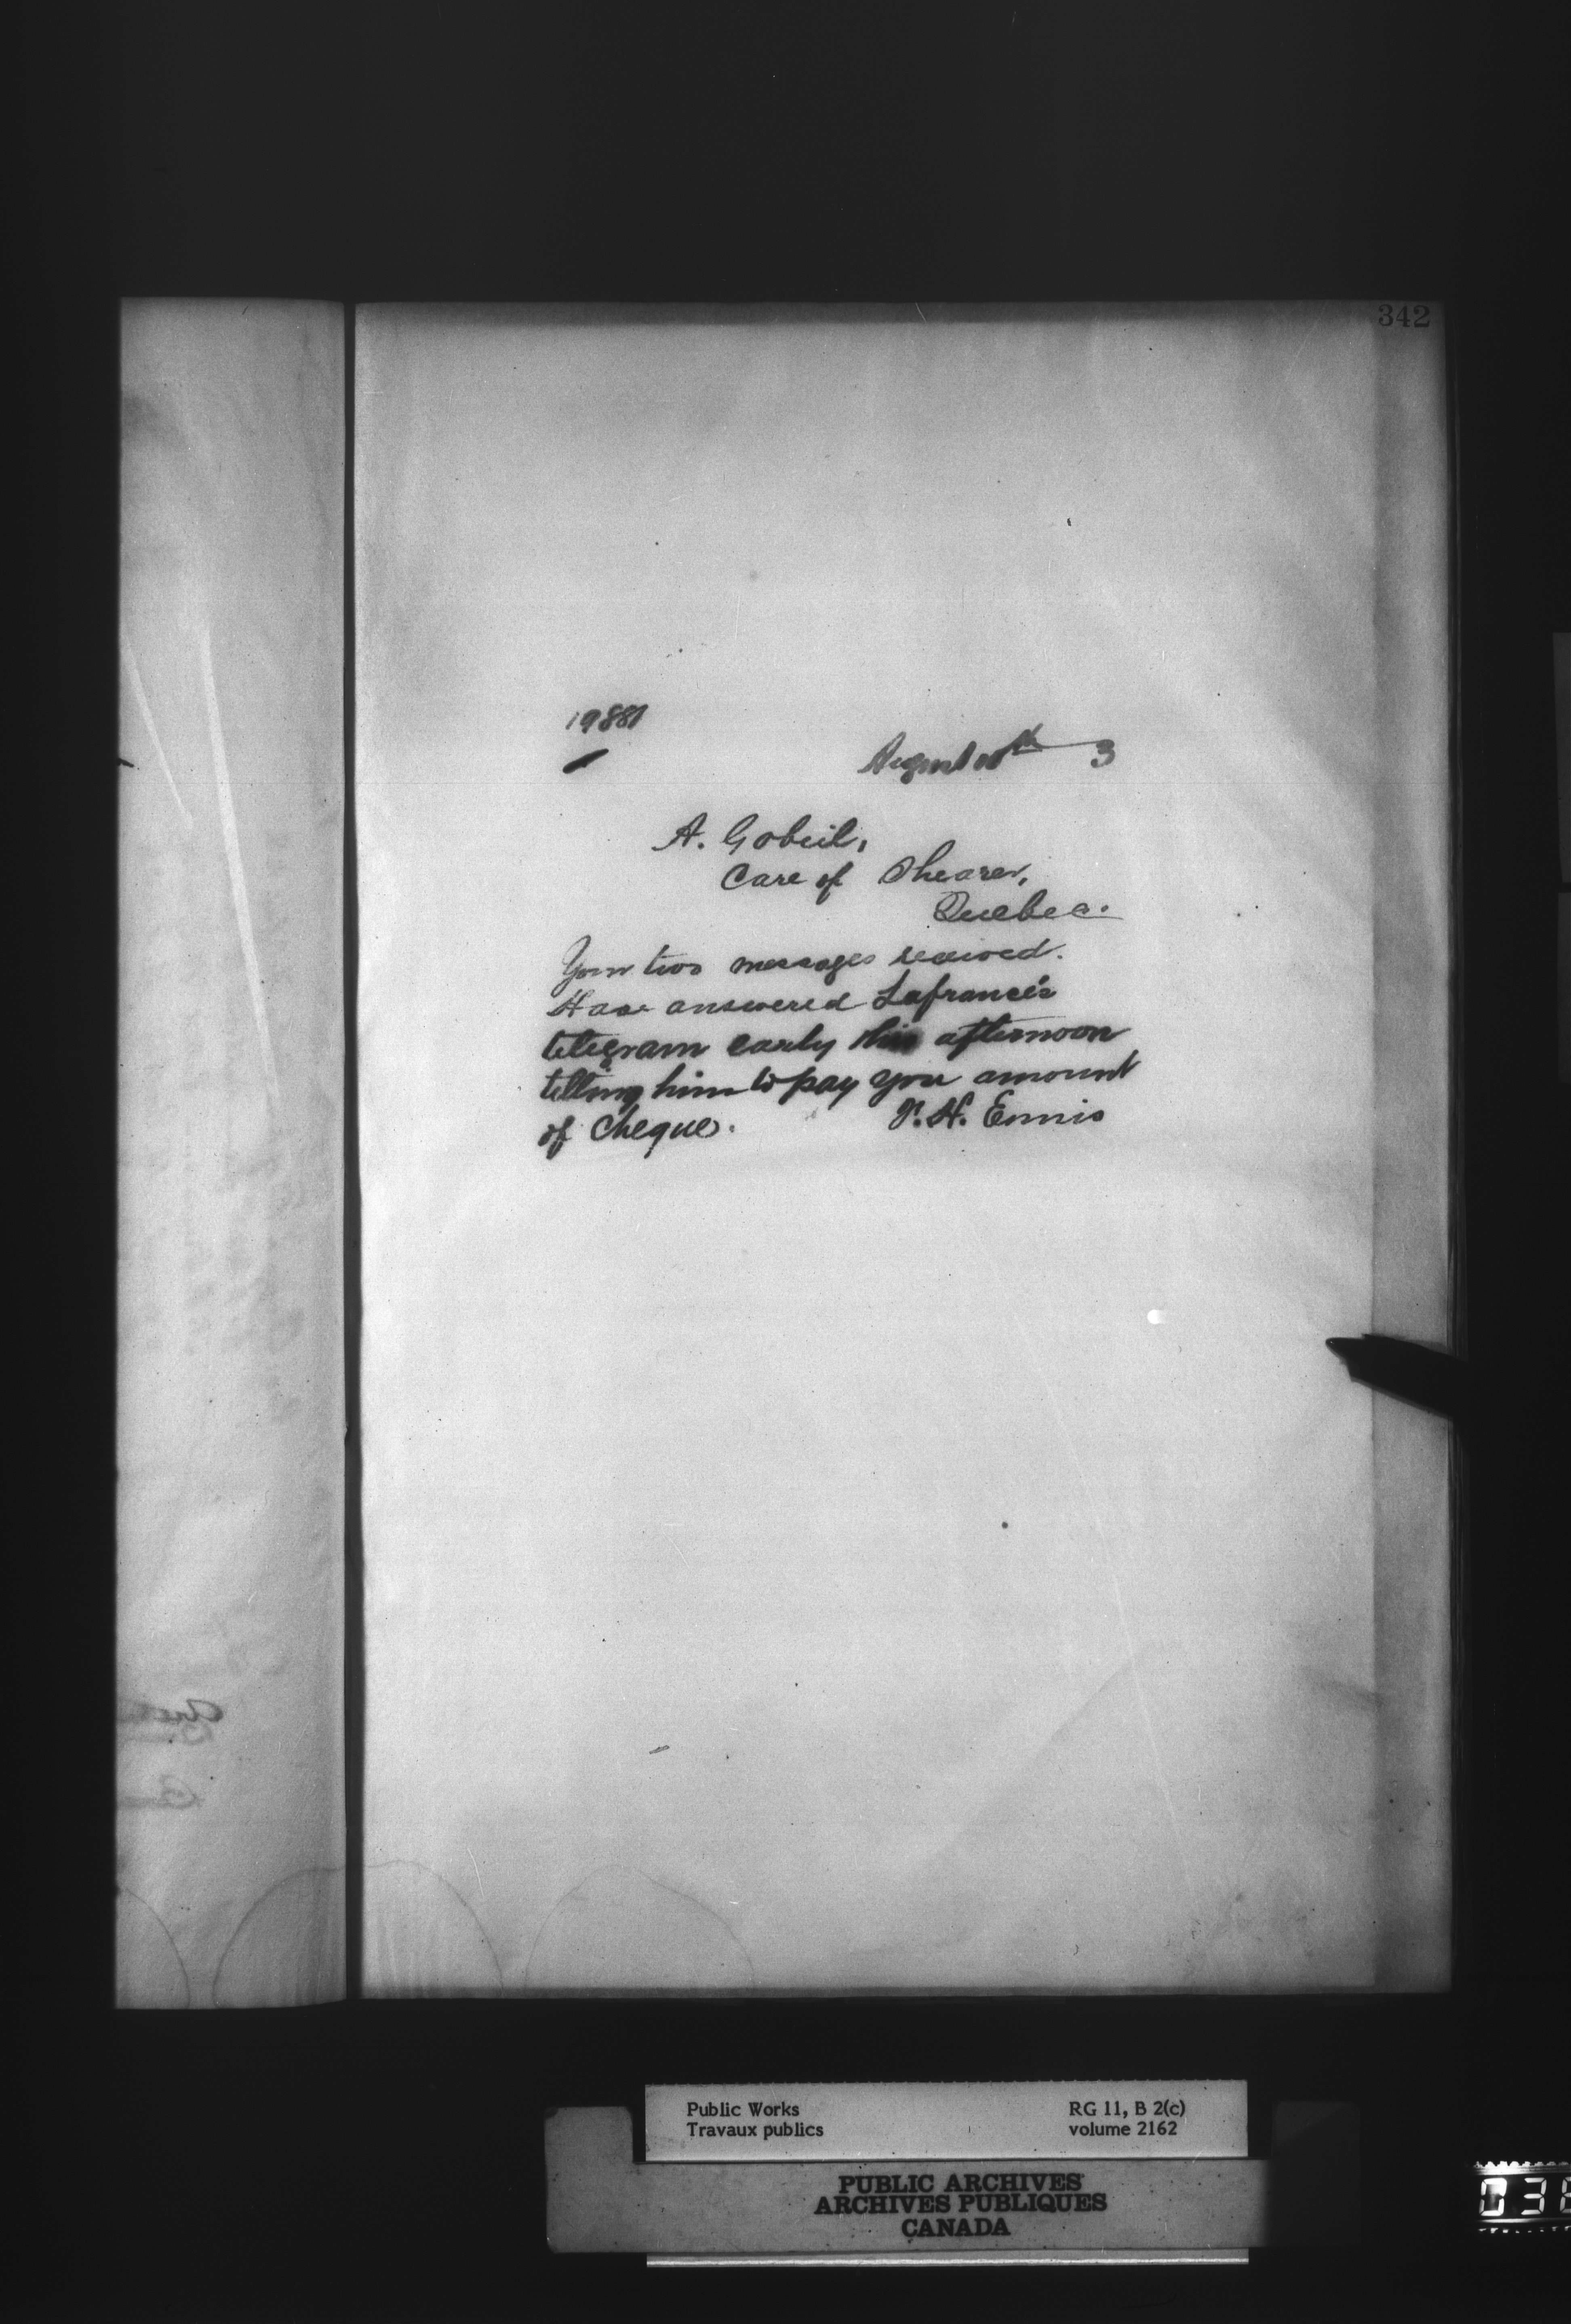 342
19881
August 10th 3
A. Gobeil,
Care of Shearer,
Quebec.
Your two messages received.
Have answered Lafrance's
telegram early this afternoon
telling him to pay you amount
of cheque. F. H. Ennis
Public Works RG 11, B 2(c)
Travaux publics volume 2162
PUBLIC ARCHIVES
ARCHIVES PUBLIQUES
CANADA